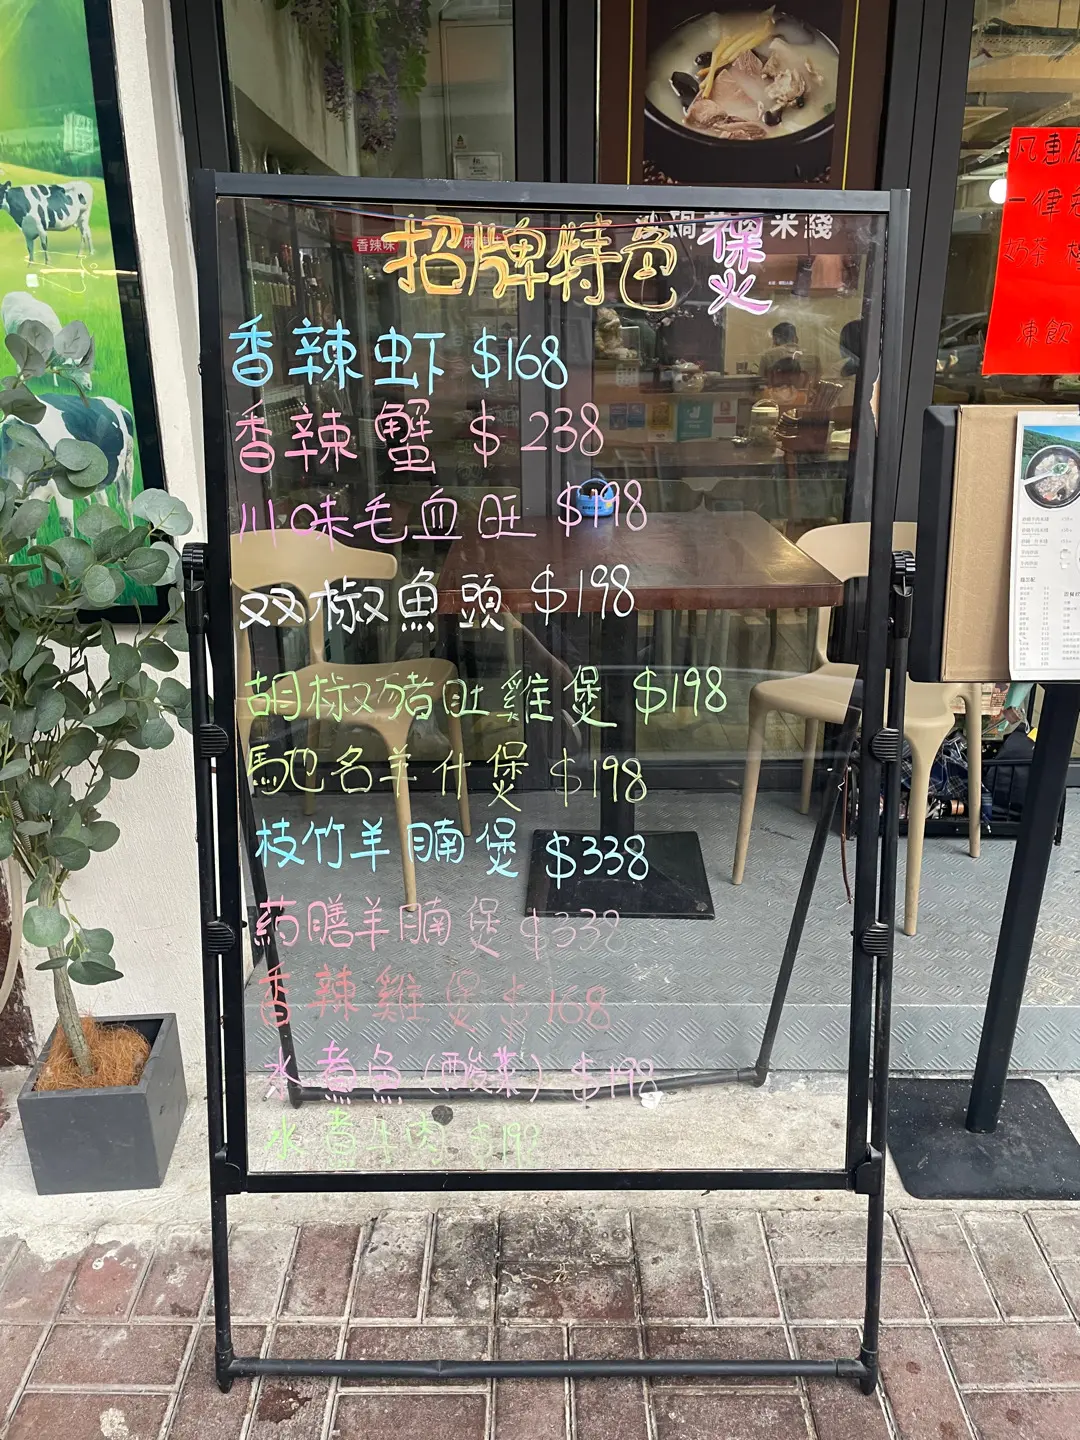 招牌特色煲
香辣虾 $168
香辣蟹 $238
川味毛血旺 $198
双椒魚頭 $198
胡椒豬肚雞煲 $198
馳名羊什煲 $198
枝竹羊腩煲 $338
药膳羊腩煲 $338
香辣雞煲 $168
水煮魚(酸菜) $198
水煮牛肉 $198
香辣味
米綫
凡惠
一律
奶茶
凍飲